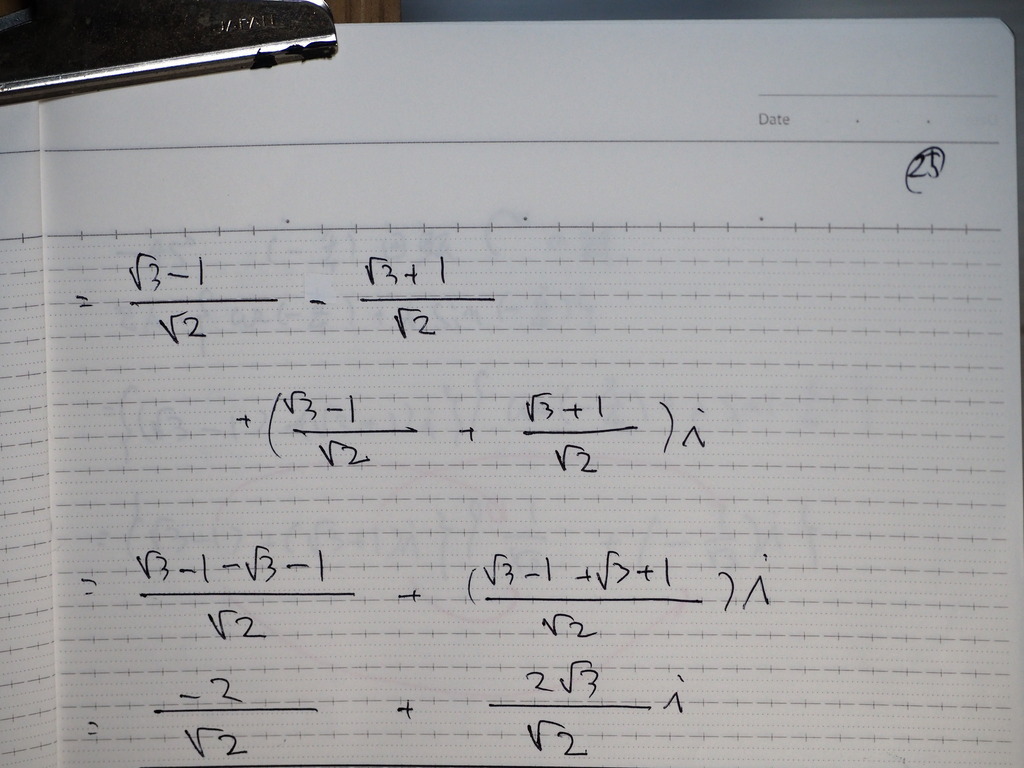 JAPAN
Date
25
= (√3-1)/√2 - (√3+1)/√2
+ ((√3-1)/√2 + (√3+1)/√2) i
= (√3-1-√3-1)/√2 + ((√3-1+√3+1)/√2) i
= -2/√2 + 2√3/√2 i